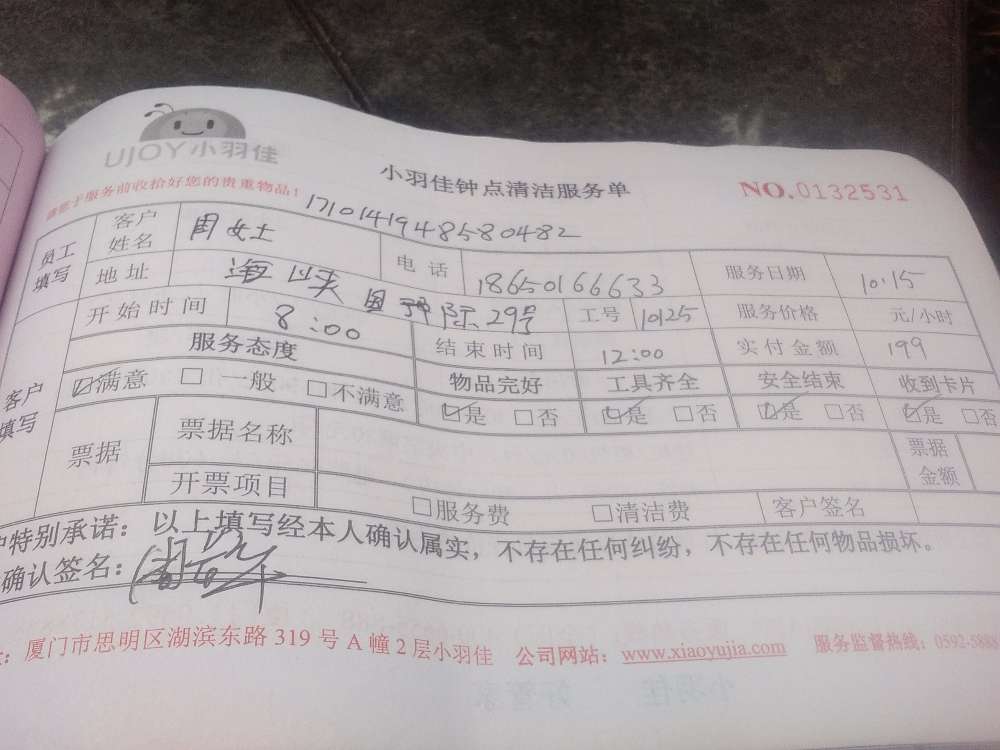 UJOY小羽佳
小羽佳钟点清洁服务单
NO.0132531
请您于服务前收拾好您的贵重物品!
1710141948580482
员工填写 客户姓名 周女士 电话 18650166633 服务日期 10.15
地址 海峡国际 29号 工号 10125 服务价格 元/小时
开始时间 8:00 结束时间 12:00 实付金额 199
客户填写 服务态度 物品完好 工具齐全 安全结束 收到卡片
☑满意 □一般 □不满意 ☑是 □否 ☑是 □否 ☑是 □否 ☑是 □否
票据 票据名称 票据金额
开票项目 □服务费 □清洁费 客户签名
户特别承诺：以上填写经本人确认属实，不存在任何纠纷，不存在任何物品损坏。
确认签名：
：厦门市思明区湖滨东路 319 号 A 幢 2 层小羽佳 公司网站：www.xiaoyujia.com 服务监督热线：0592-5888